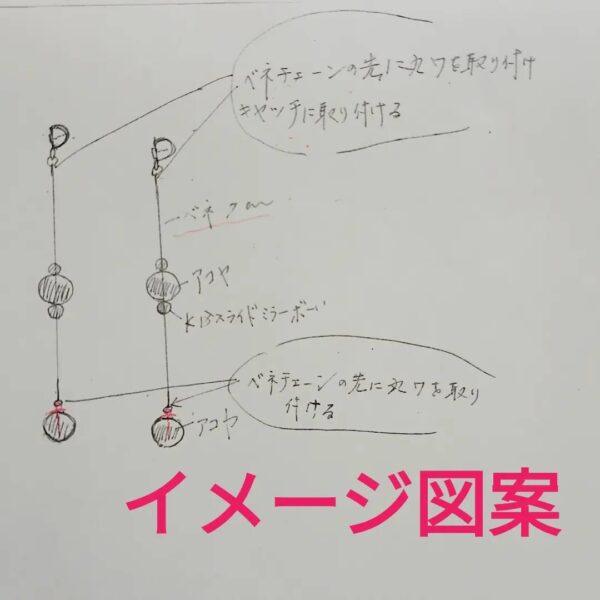 ベネチェーンの先に丸ワを取り付け
キャッチに取り付ける
ベネ 7cm
アコヤ
K18スライドミラーボール
ベネチェーンの先に丸ワを取り
付ける
アコヤ
イメージ図案